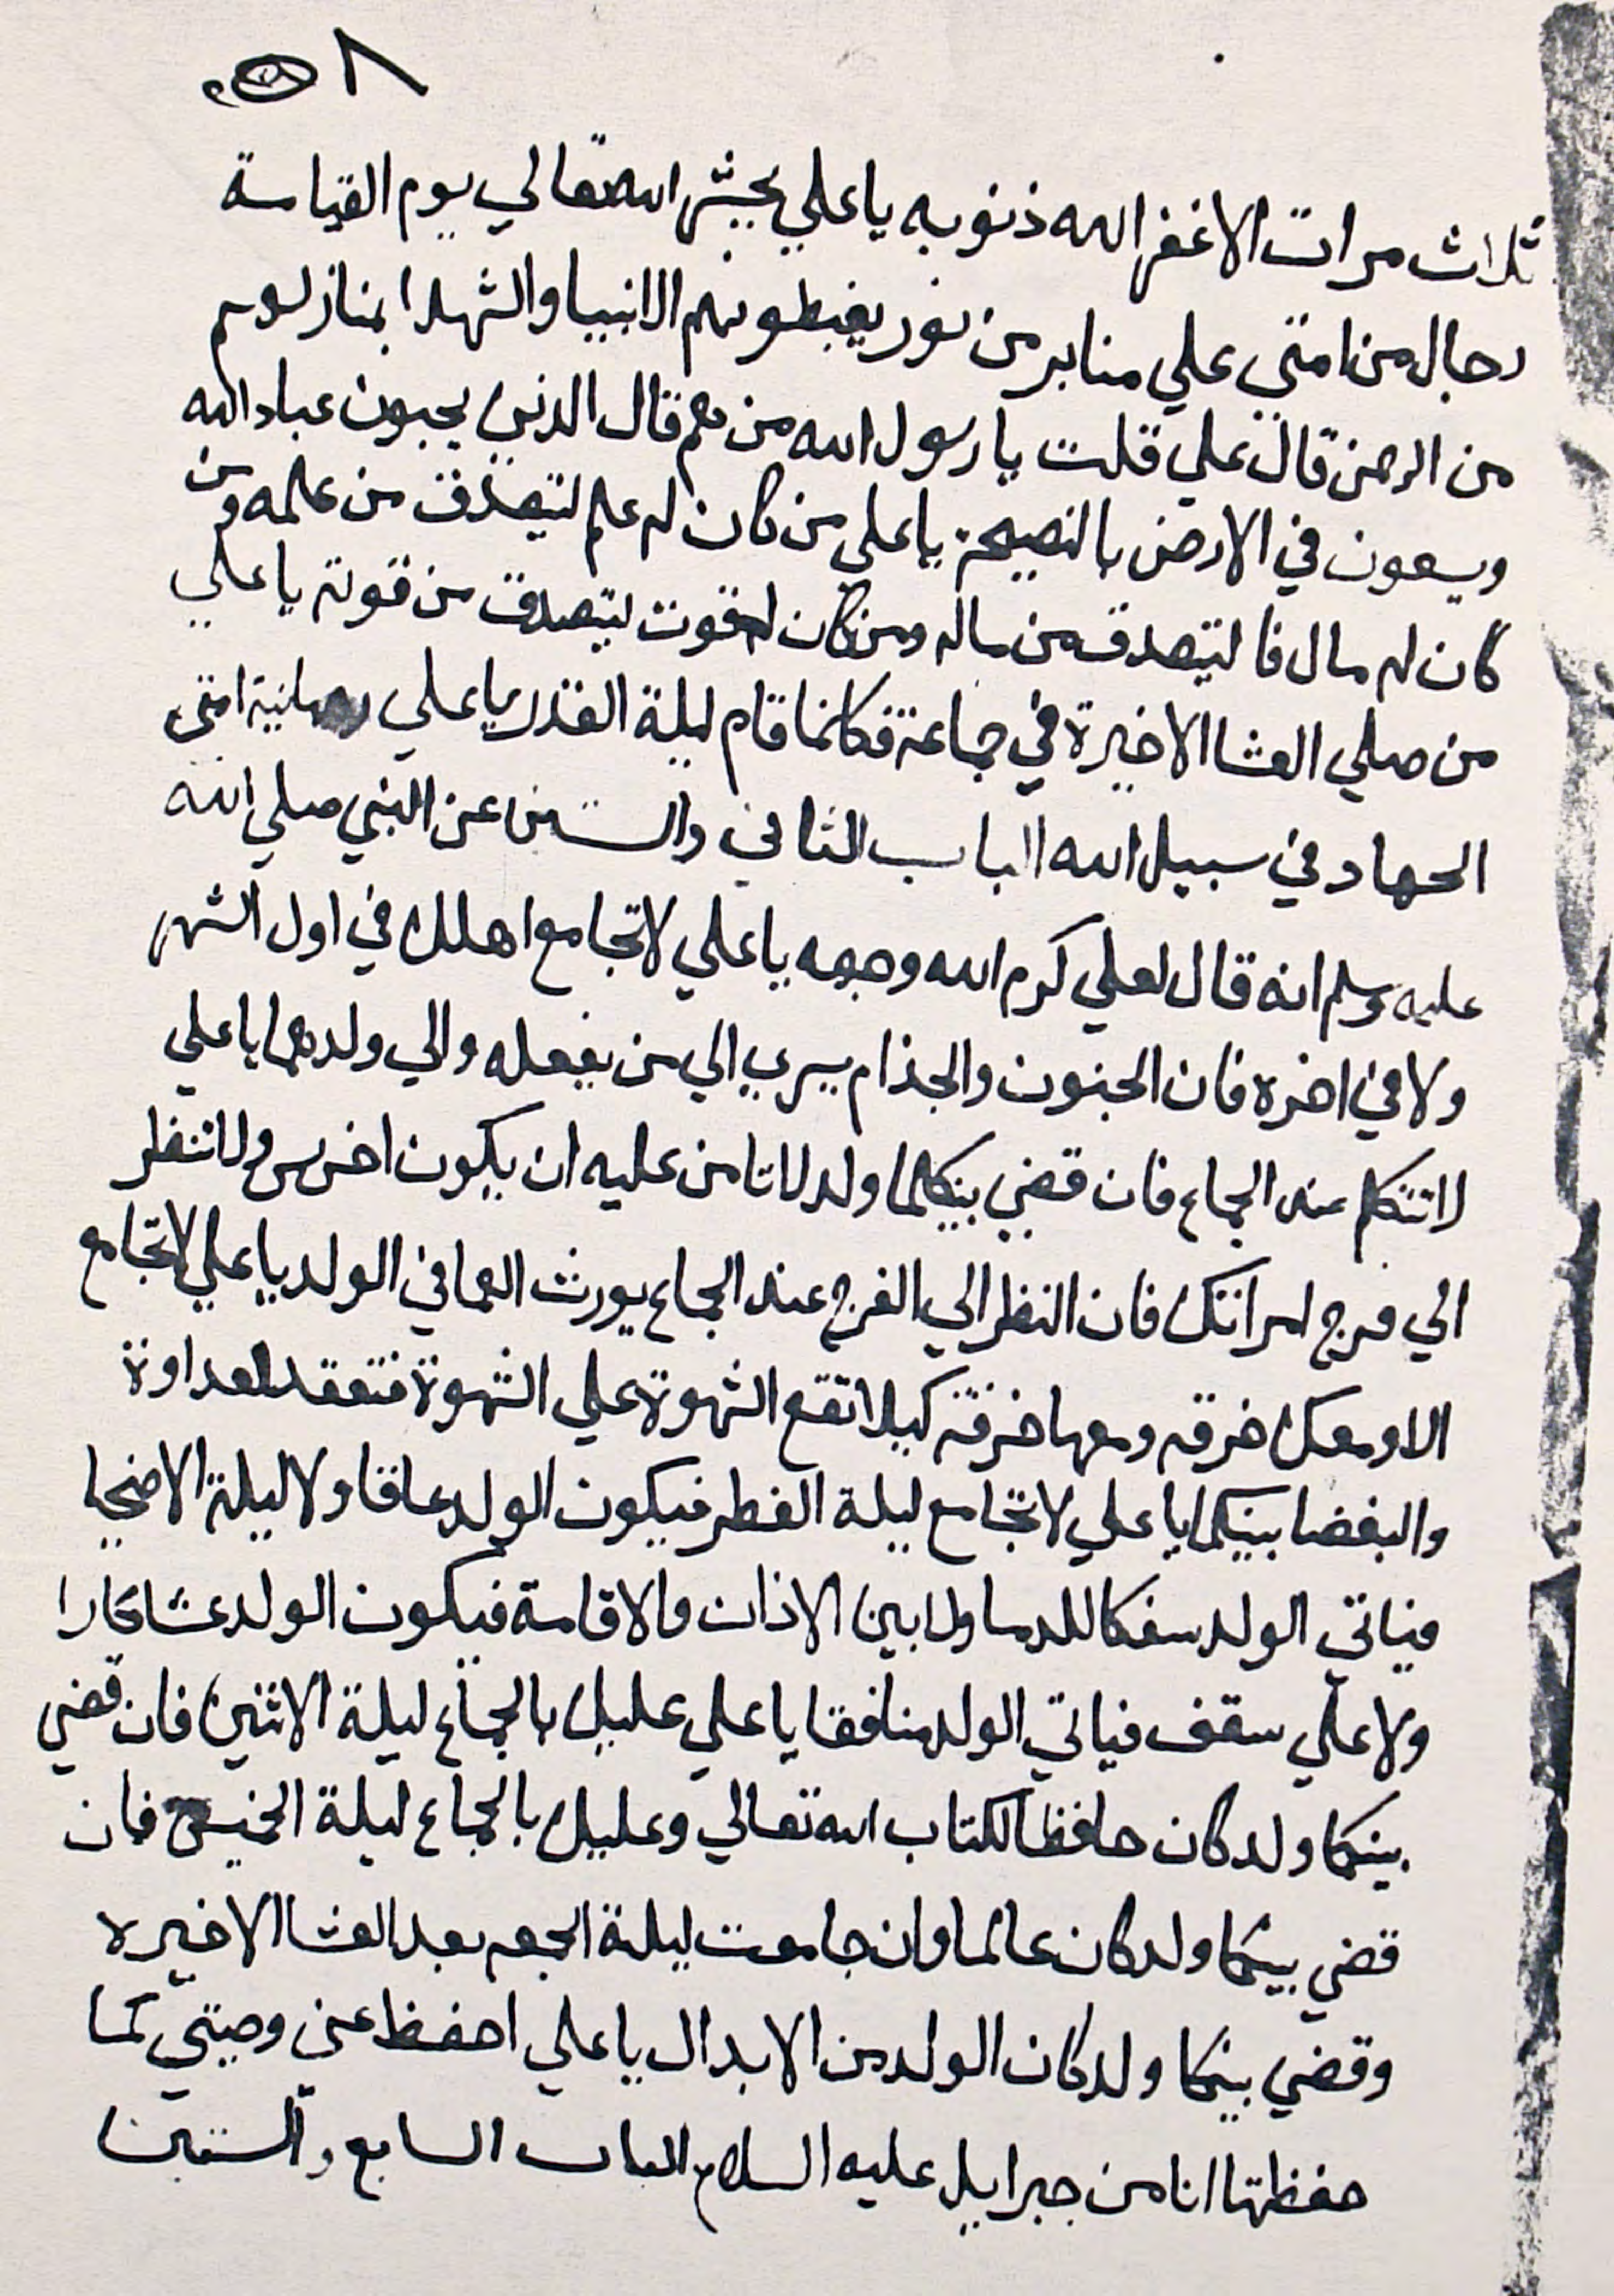 ٨
ثلاث مرات الا غفر الله ذنوبه يا علي يجيش الله تعالي يوم القيامة
رجال من امتي علي منابر من نور يغبطونهم الانبيا والشهدا بمنازلهم
من الرحمن قال علي قلت يا رسول الله من هم قال الذين يحبون عباد الله
ويسعون في الارض بالنصيحة يا علي من كان له علم ليتصدق من علمه ومن
كان له مال فاليتصدق من ماله ومن كان له قوت ليتصدق من قوته يا علي
من صلي العشا الاخيرة في جماعة فكانما قام ليلة القدر يا علي رهبانية امتي
الجهاد في سبيل الله الباب الثاني والستين عن النبي صلي الله
عليه وسلم انه قال لعلي كرم الله وجهه يا علي لا تجامع اهلك في اول الشهر
ولا في اخره فان الجنون والجذام يسري الي من يفعله والي ولدهما يا علي
لا تتكلم عند الجماع فان قضي بينكما ولد لا تامن عليه ان يكون اخرس ولا تنظر
الي فرج امراتك فان النظر الي الفرج عند الجماع يورث العما في الولد يا علي لا تجامع
الا ومعك خرقه ومعها خرقة كيلا تقع الشهوة علي الشهوة فتعقد العداوة
والبغضا بينكما يا علي لا تجامع ليلة الفطر فيكون الولد عاقا ولا ليلة الاضحا
فياتي الولد سفكا للدما ولا بين الاذان والاقامة فيكون الولد عشارا
ولا علي سقف فياتي الولد منافقا يا علي عليك بالجماع ليلة الاثنين فان قضي
بينكما ولد كان حافظا لكتاب الله تعالي وعليك بالجماع ليلة الخميس فان
قضي بينكما ولد كان عالما وان جامعت ليلة الجمعه بعد العشا الاخيره
وقضي بينكما ولد كان الولد من الابدال يا علي احفظ عني وصيتي كما
حفظتها انا من جبرايل عليه السلام الباب السابع والستين